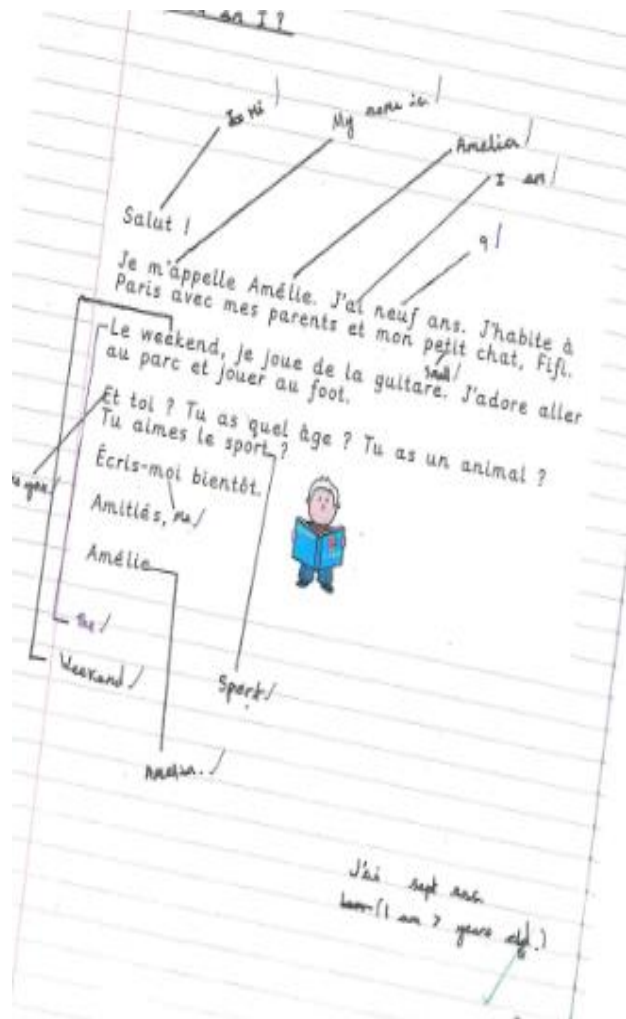 an I ?
Hi
My name is
Amelia
I am
9
Salut !
Je m'appelle Amélie. J'ai neuf ans. J'habite à
Paris avec mes parents et mon petit chat, Fifi.
small
Le weekend, je joue de la guitare. J'adore aller
au parc et jouer au foot.
Et toi ? Tu as quel âge ? Tu as un animal ?
Tu aimes le sport ?
you
Écris-moi bientôt.
Amitiés, me
Amélie
the
Weekend
Sport
Amelia.
J'ai sept ans.
(I am 7 years old.)